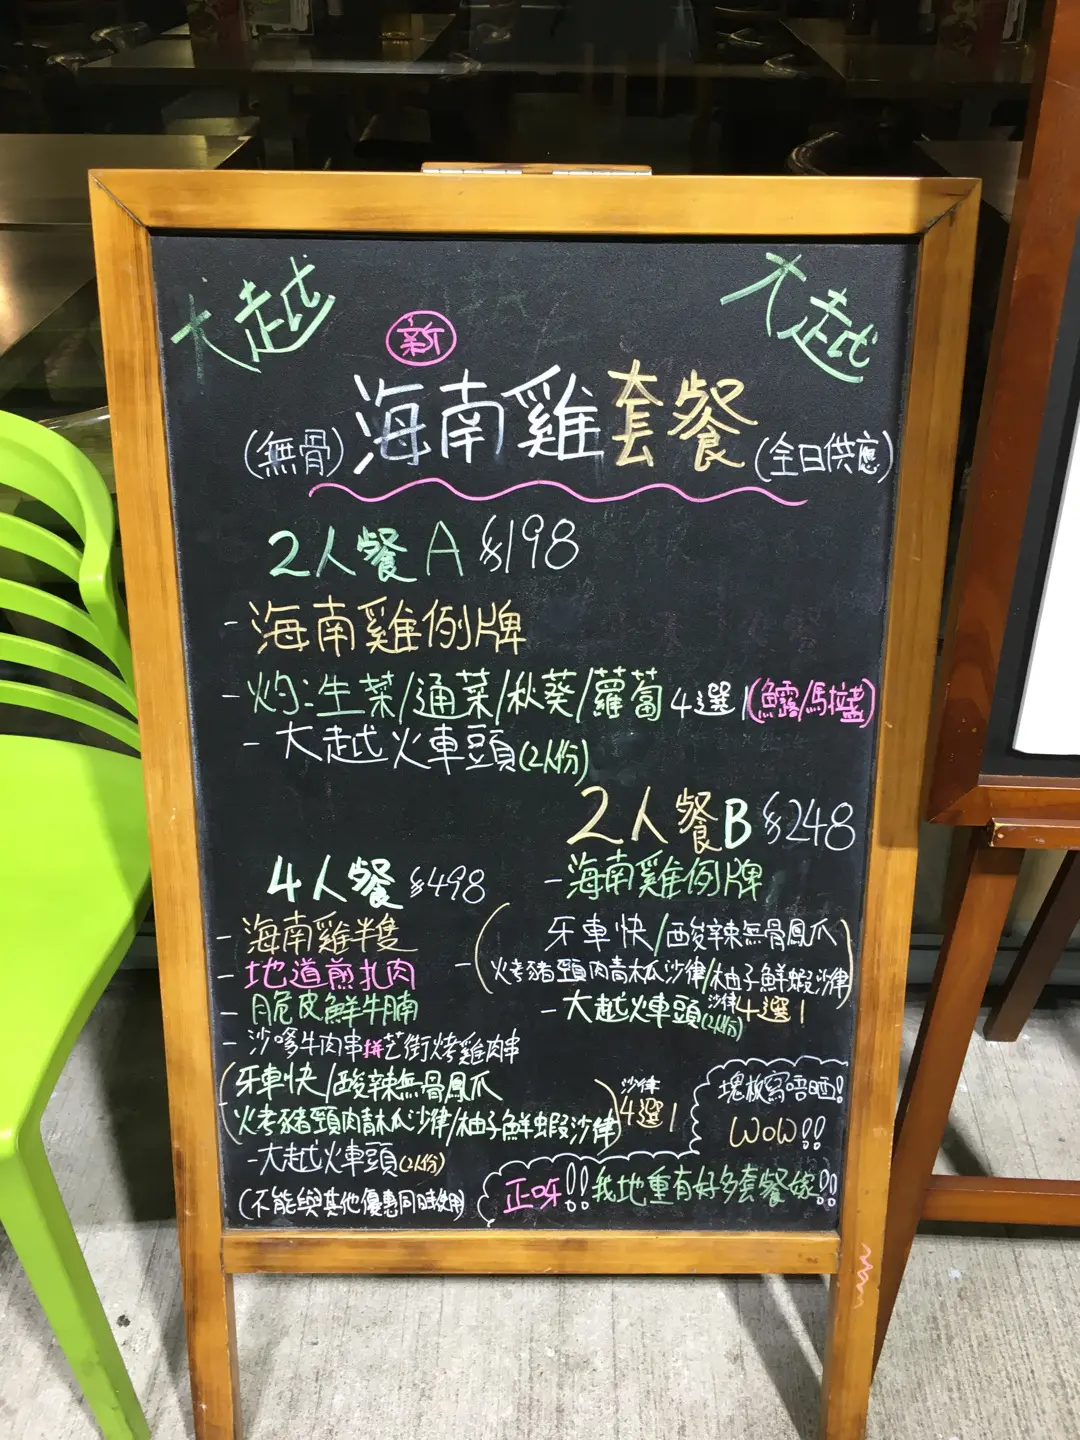 大越
大越
新
(無骨) 海南雞套餐 (全日供應)
2人餐A $198
- 海南雞例牌
- 灼:生菜/通菜/秋葵/蘿蔔 4選1 (鱸露/馬拉盞)
- 大越火車頭(2人份)
2人餐B $248
- 海南雞例牌
- (牙車快/酸辣無骨鳳爪
火考豬頸肉青木瓜沙律/柚子鮮蝦沙律) 沙律4選1
- 大越火車頭(2人份)
4人餐 $498
- 海南雞半隻
- 地道煎扎肉
- 脆皮鮮牛腩
- 沙嗲牛肉串拼芝街烤雞肉串
(牙車快/酸辣無骨鳳爪
火考豬頸肉青木瓜沙律/柚子鮮蝦沙律) 沙律4選1
- 大越火車頭(2人份)
(不能與其他優惠同時使用)
塊板寫唔晒!
WOW!!
正呀!! 我地重有好多套餐㗎!!